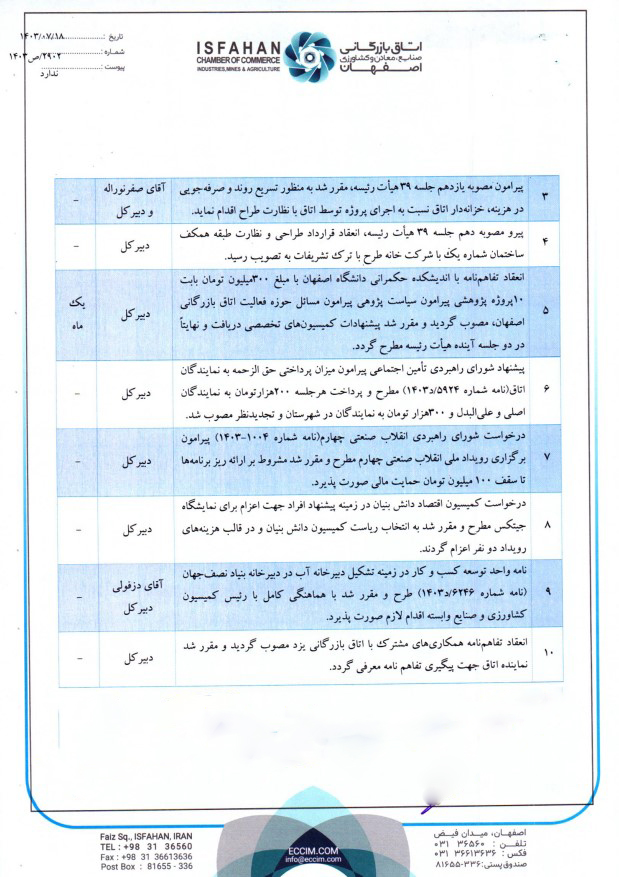 تاریخ : ۱۴۰۳/۰۷/۱۸
شماره : ۲۹۰۲/ص/۱۴۰۳
پیوست : ندارد
ISFAHAN
CHAMBER OF COMMERCE
INDUSTRIES, MINES & AGRICULTURE
اتاق بازرگانی
صنایع، معادن و کشاورزی
اصفهان
۳
پیرامون مصوبه یازدهم جلسه ۳۹ هیأت رئیسه، مقرر شد به منظور تسریع روند و صرفه‌جویی
در هزینه، خزانه‌دار اتاق نسبت به اجرای پروژه توسط اتاق با نظارت طراح اقدام نماید.
آقای صفرنوراله
و دبیرکل
-
۴
پیرو مصوبه دهم جلسه ۳۹ هیأت رئیسه، انعقاد قرارداد طراحی و نظارت طبقه همکف
ساختمان شماره یک با شرکت خانه طرح با ترک تشریفات به تصویب رسید.
دبیرکل
-
۵
انعقاد تفاهم‌نامه با اندیشکده حکمرانی دانشگاه اصفهان با مبلغ ۳۰۰میلیون تومان بابت
۱۰پروژه پژوهشی پیرامون سیاست پژوهی پیرامون مسائل حوزه فعالیت اتاق بازرگانی
اصفهان، مصوب گردید و مقرر شد پیشنهادات کمیسیون‌های تخصصی دریافت و نهایتاً
در دو جلسه آینده هیأت رئیسه مطرح گردد.
دبیرکل
یک
ماه
۶
پیشنهاد شورای راهبردی تأمین اجتماعی پیرامون میزان پرداختی حق الزحمه به نمایندگان
اتاق(نامه شماره ۵۹۲۴/د/۱۴۰۳) مطرح و پرداخت هرجلسه ۲۰۰هزارتومان به نمایندگان
اصلی و علی‌البدل و ۳۰۰هزار تومان به نمایندگان در شهرستان و تجدیدنظر مصوب شد.
دبیرکل
-
۷
درخواست شورای راهبردی انقلاب صنعتی چهارم(نامه شماره ۱۰۰۴-۱۴۰۳) پیرامون
برگزاری رویداد ملی انقلاب صنعتی چهارم مطرح و مقرر شد مشروط بر ارائه ریز برنامه‌ها
تا سقف ۱۰۰ میلیون تومان حمایت مالی صورت پذیرد.
دبیرکل
-
۸
درخواست کمیسیون اقتصاد دانش بنیان در زمینه پیشنهاد افراد جهت اعزام برای نمایشگاه
جیتکس مطرح و مقرر شد به انتخاب ریاست کمیسیون دانش بنیان و در قالب هزینه‌های
رویداد دو نفر اعزام گردند.
دبیرکل
-
۹
نامه واحد توسعه کسب و کار در زمینه تشکیل دبیرخانه آب در دبیرخانه بنیاد نصف‌جهان
(نامه شماره ۶۲۴۶/د/۱۴۰۳) طرح و مقرر شد با هماهنگی کامل با رئیس کمیسیون
کشاورزی و صنایع وابسته اقدام لازم صورت پذیرد.
آقای دزفولی
دبیرکل
-
۱۰
انعقاد تفاهم‌نامه همکاری‌های مشترک با اتاق بازرگانی یزد مصوب گردید و مقرر شد
نماینده اتاق جهت پیگیری تفاهم نامه معرفی گردد.
دبیرکل
-
Faiz Sq., ISFAHAN, IRAN
TEL : +98 31 36560
Fax : +98 31 36613636
Post Box : 81655 - 336
ECCIM.COM
info@eccim.com
اصفهان، میدان فیض
تلفن : ۳۶۵۶۰ ۰۳۱
فکس : ۳۶۶۱۳۶۳۶ ۰۳۱
صندوق پستی: ۳۳۶-۸۱۶۵۵